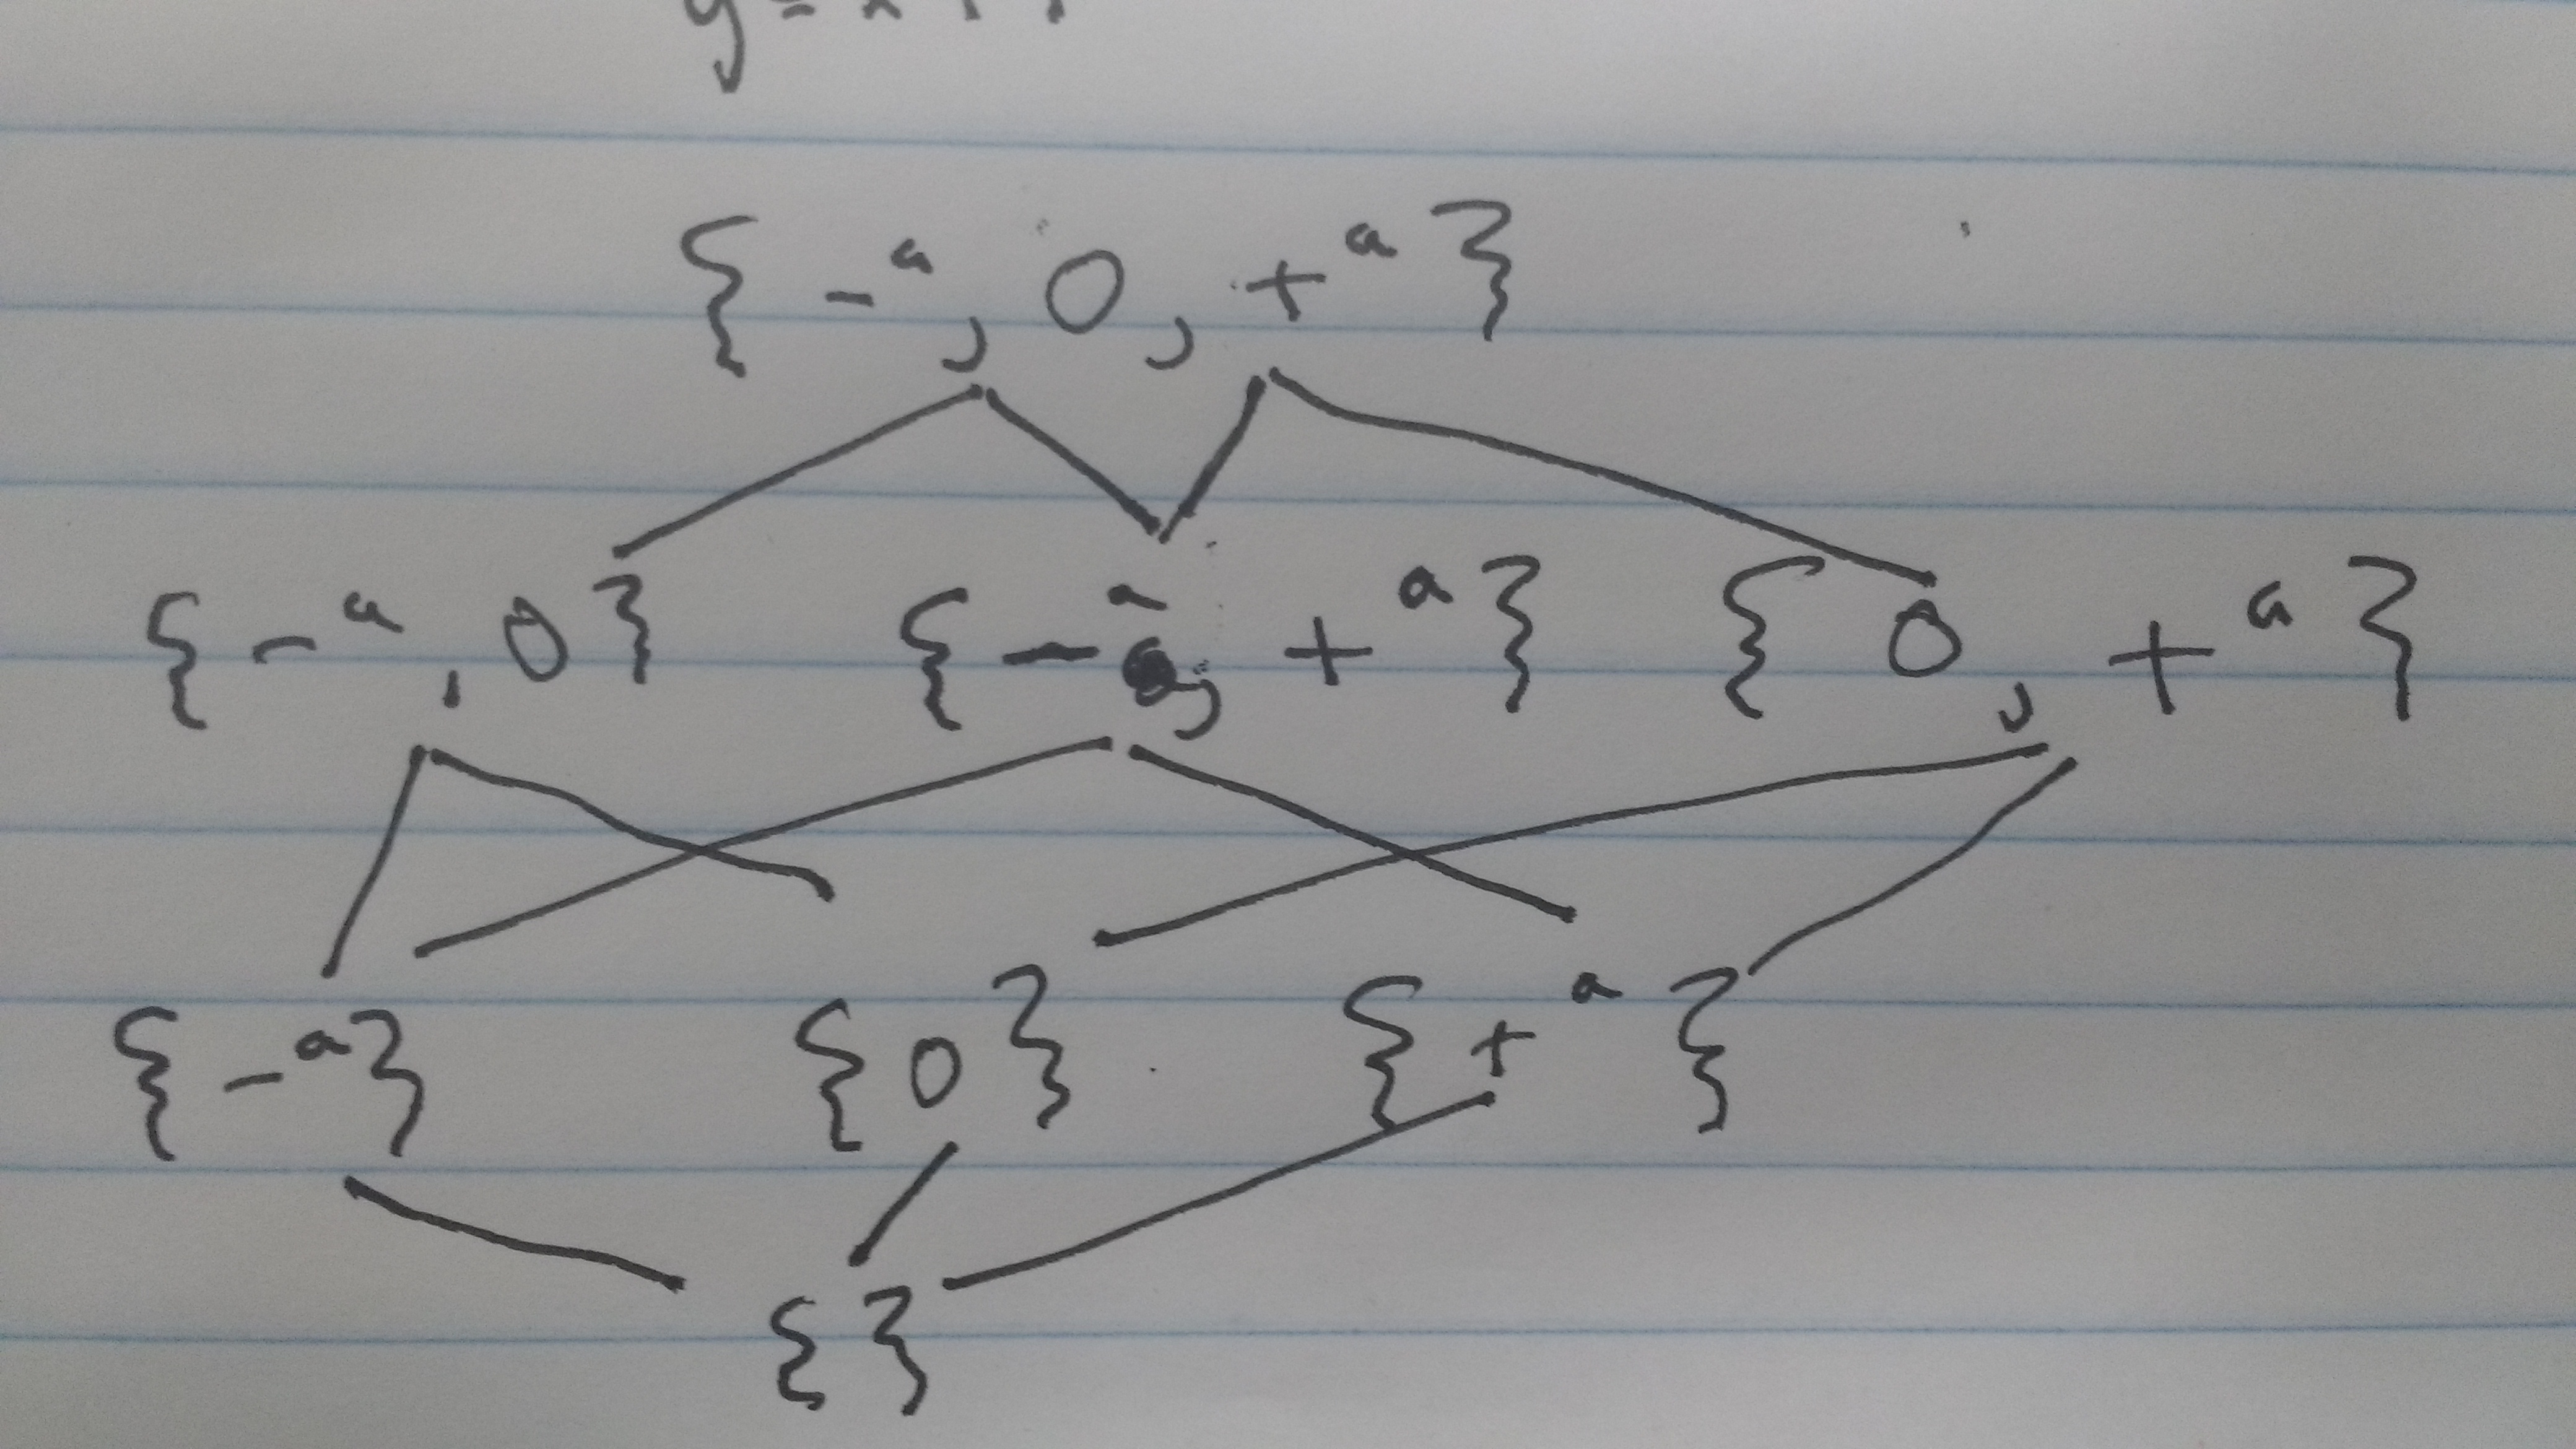 {-ᵃ, 0, +ᵃ}
{-ᵃ, 0} {-ᵃ, +ᵃ} {0, +ᵃ}
{-ᵃ} {0} {+ᵃ}
{}